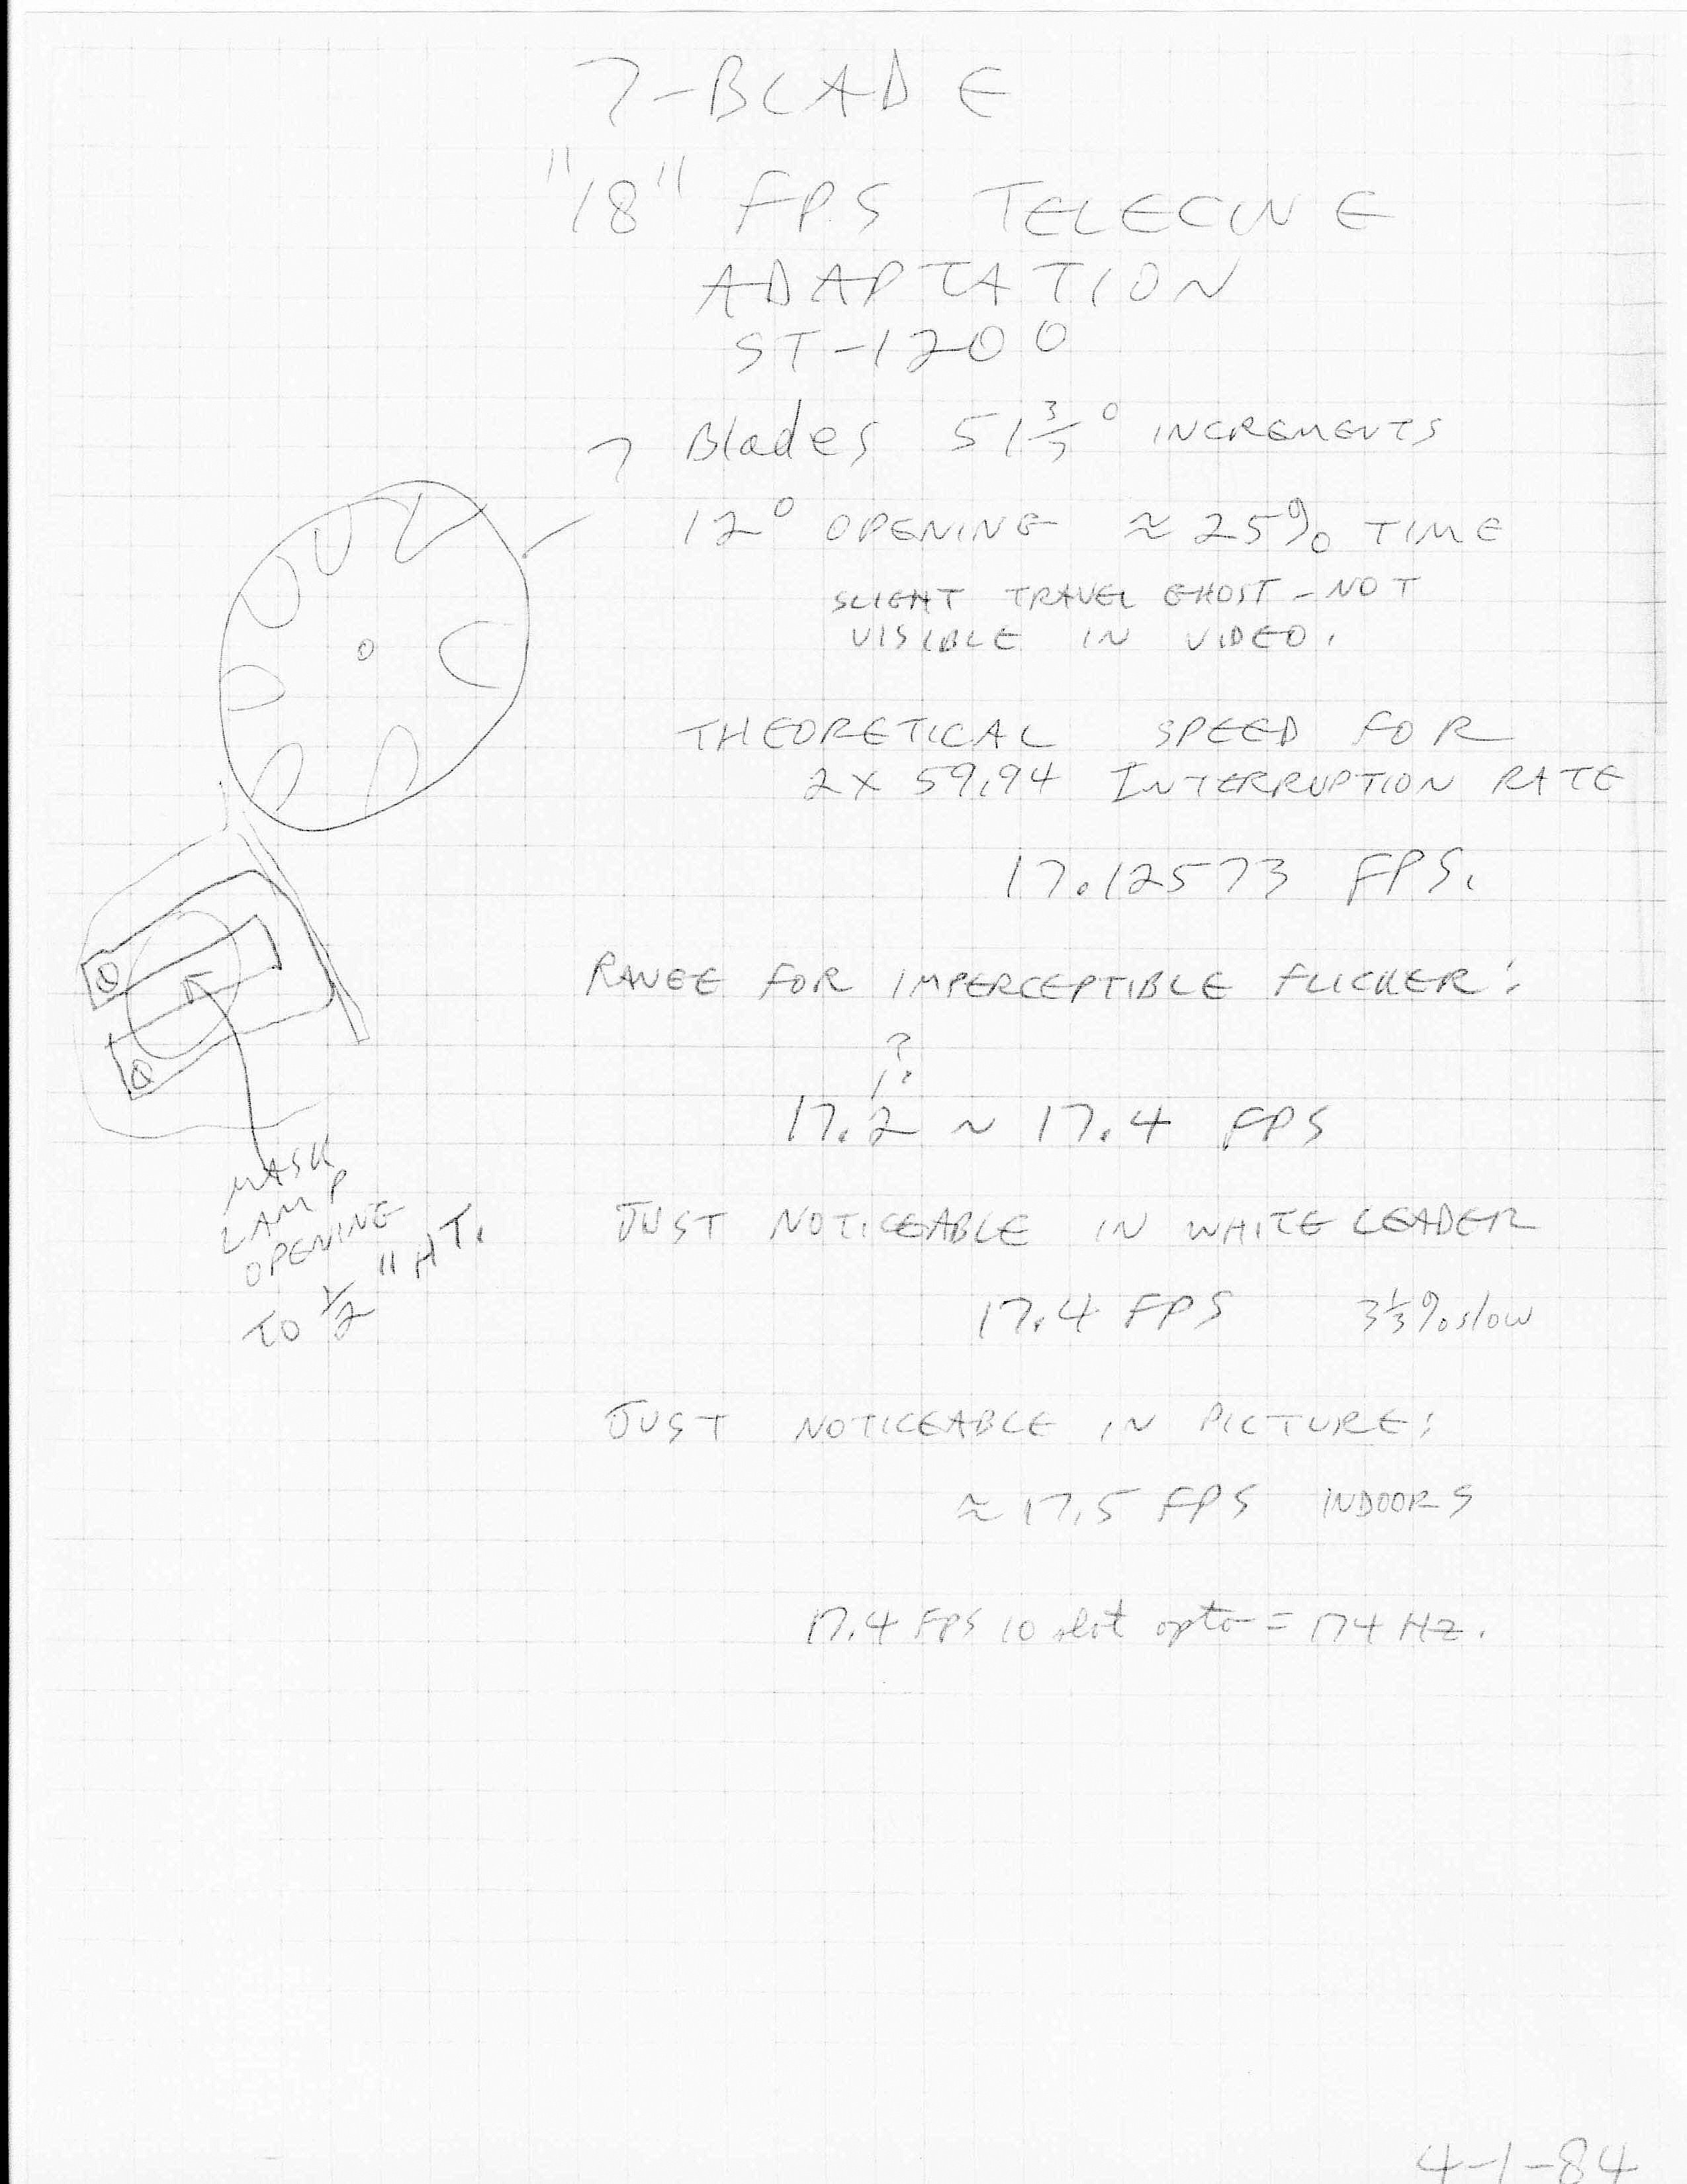 7-BLADE
"18" FPS TELECINE
ADAPTATION
ST-1200
7 Blades 51 3/7° INCREMENTS
12° OPENING ≈ 25% TIME
SLIGHT TRAVEL GHOST - NOT
VISIBLE IN VIDEO.
THEORETICAL SPEED FOR
2X 59.94 INTERRUPTION RATE
17.12573 FPS.
RANGE FOR IMPERCEPTIBLE FLICKER:
?
1?
17.2 ~ 17.4 FPS
MASK
LAMP
OPENING
TO 1/2" HT.
JUST NOTICEABLE IN WHITE LEADER
17.4 FPS 3 1/3% slow
JUST NOTICEABLE IN PICTURE:
≈ 17.5 FPS INDOORS
17.4 FPS 10 slot opto = 174 HZ.
4-1-84